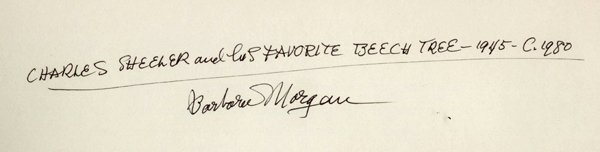 CHARLES SHEELER and his FAVORITE BEECH TREE - 1945 - C. 1980
Barbara Morgan